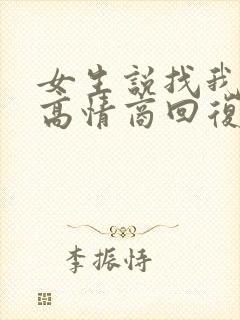 女生說找我
高情商回復
李振恃